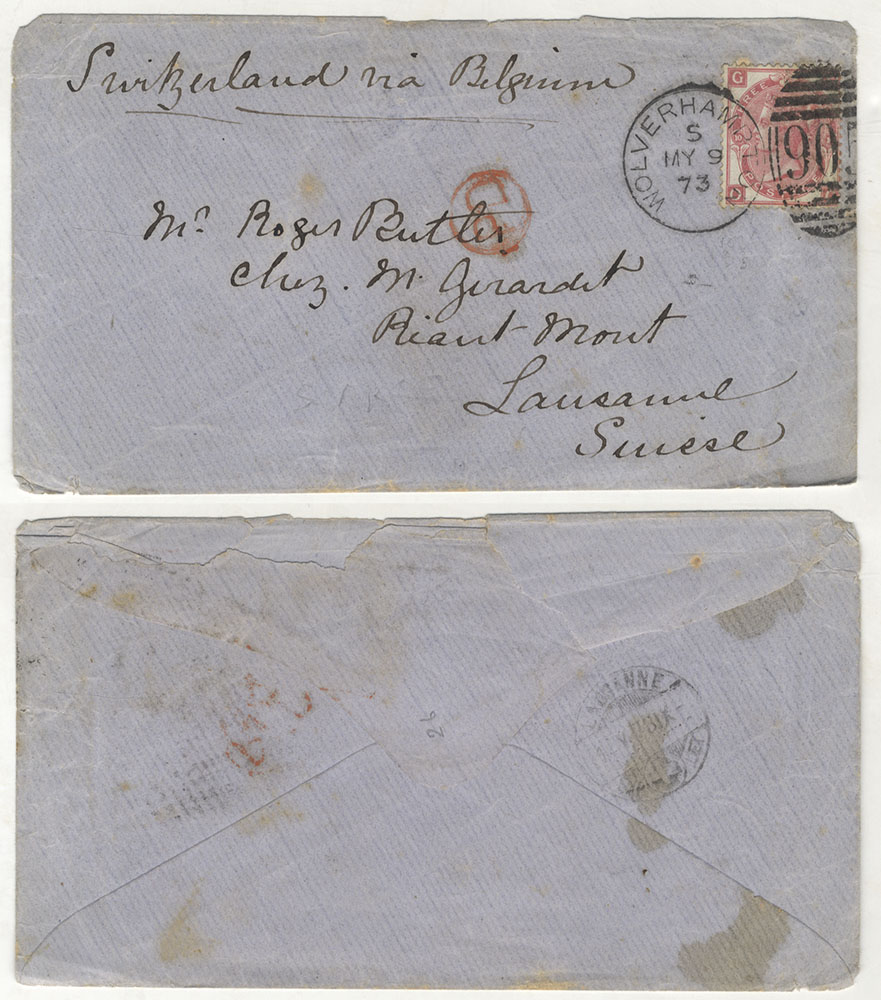 Switzerland via Belgium
WOLVERHAMPT
S
MY 9
73
G
905
D
Mr. Roger Butler
Chez. M. Girardet
Riant Mont
Lausanne
Suisse
26
LAUSANNE